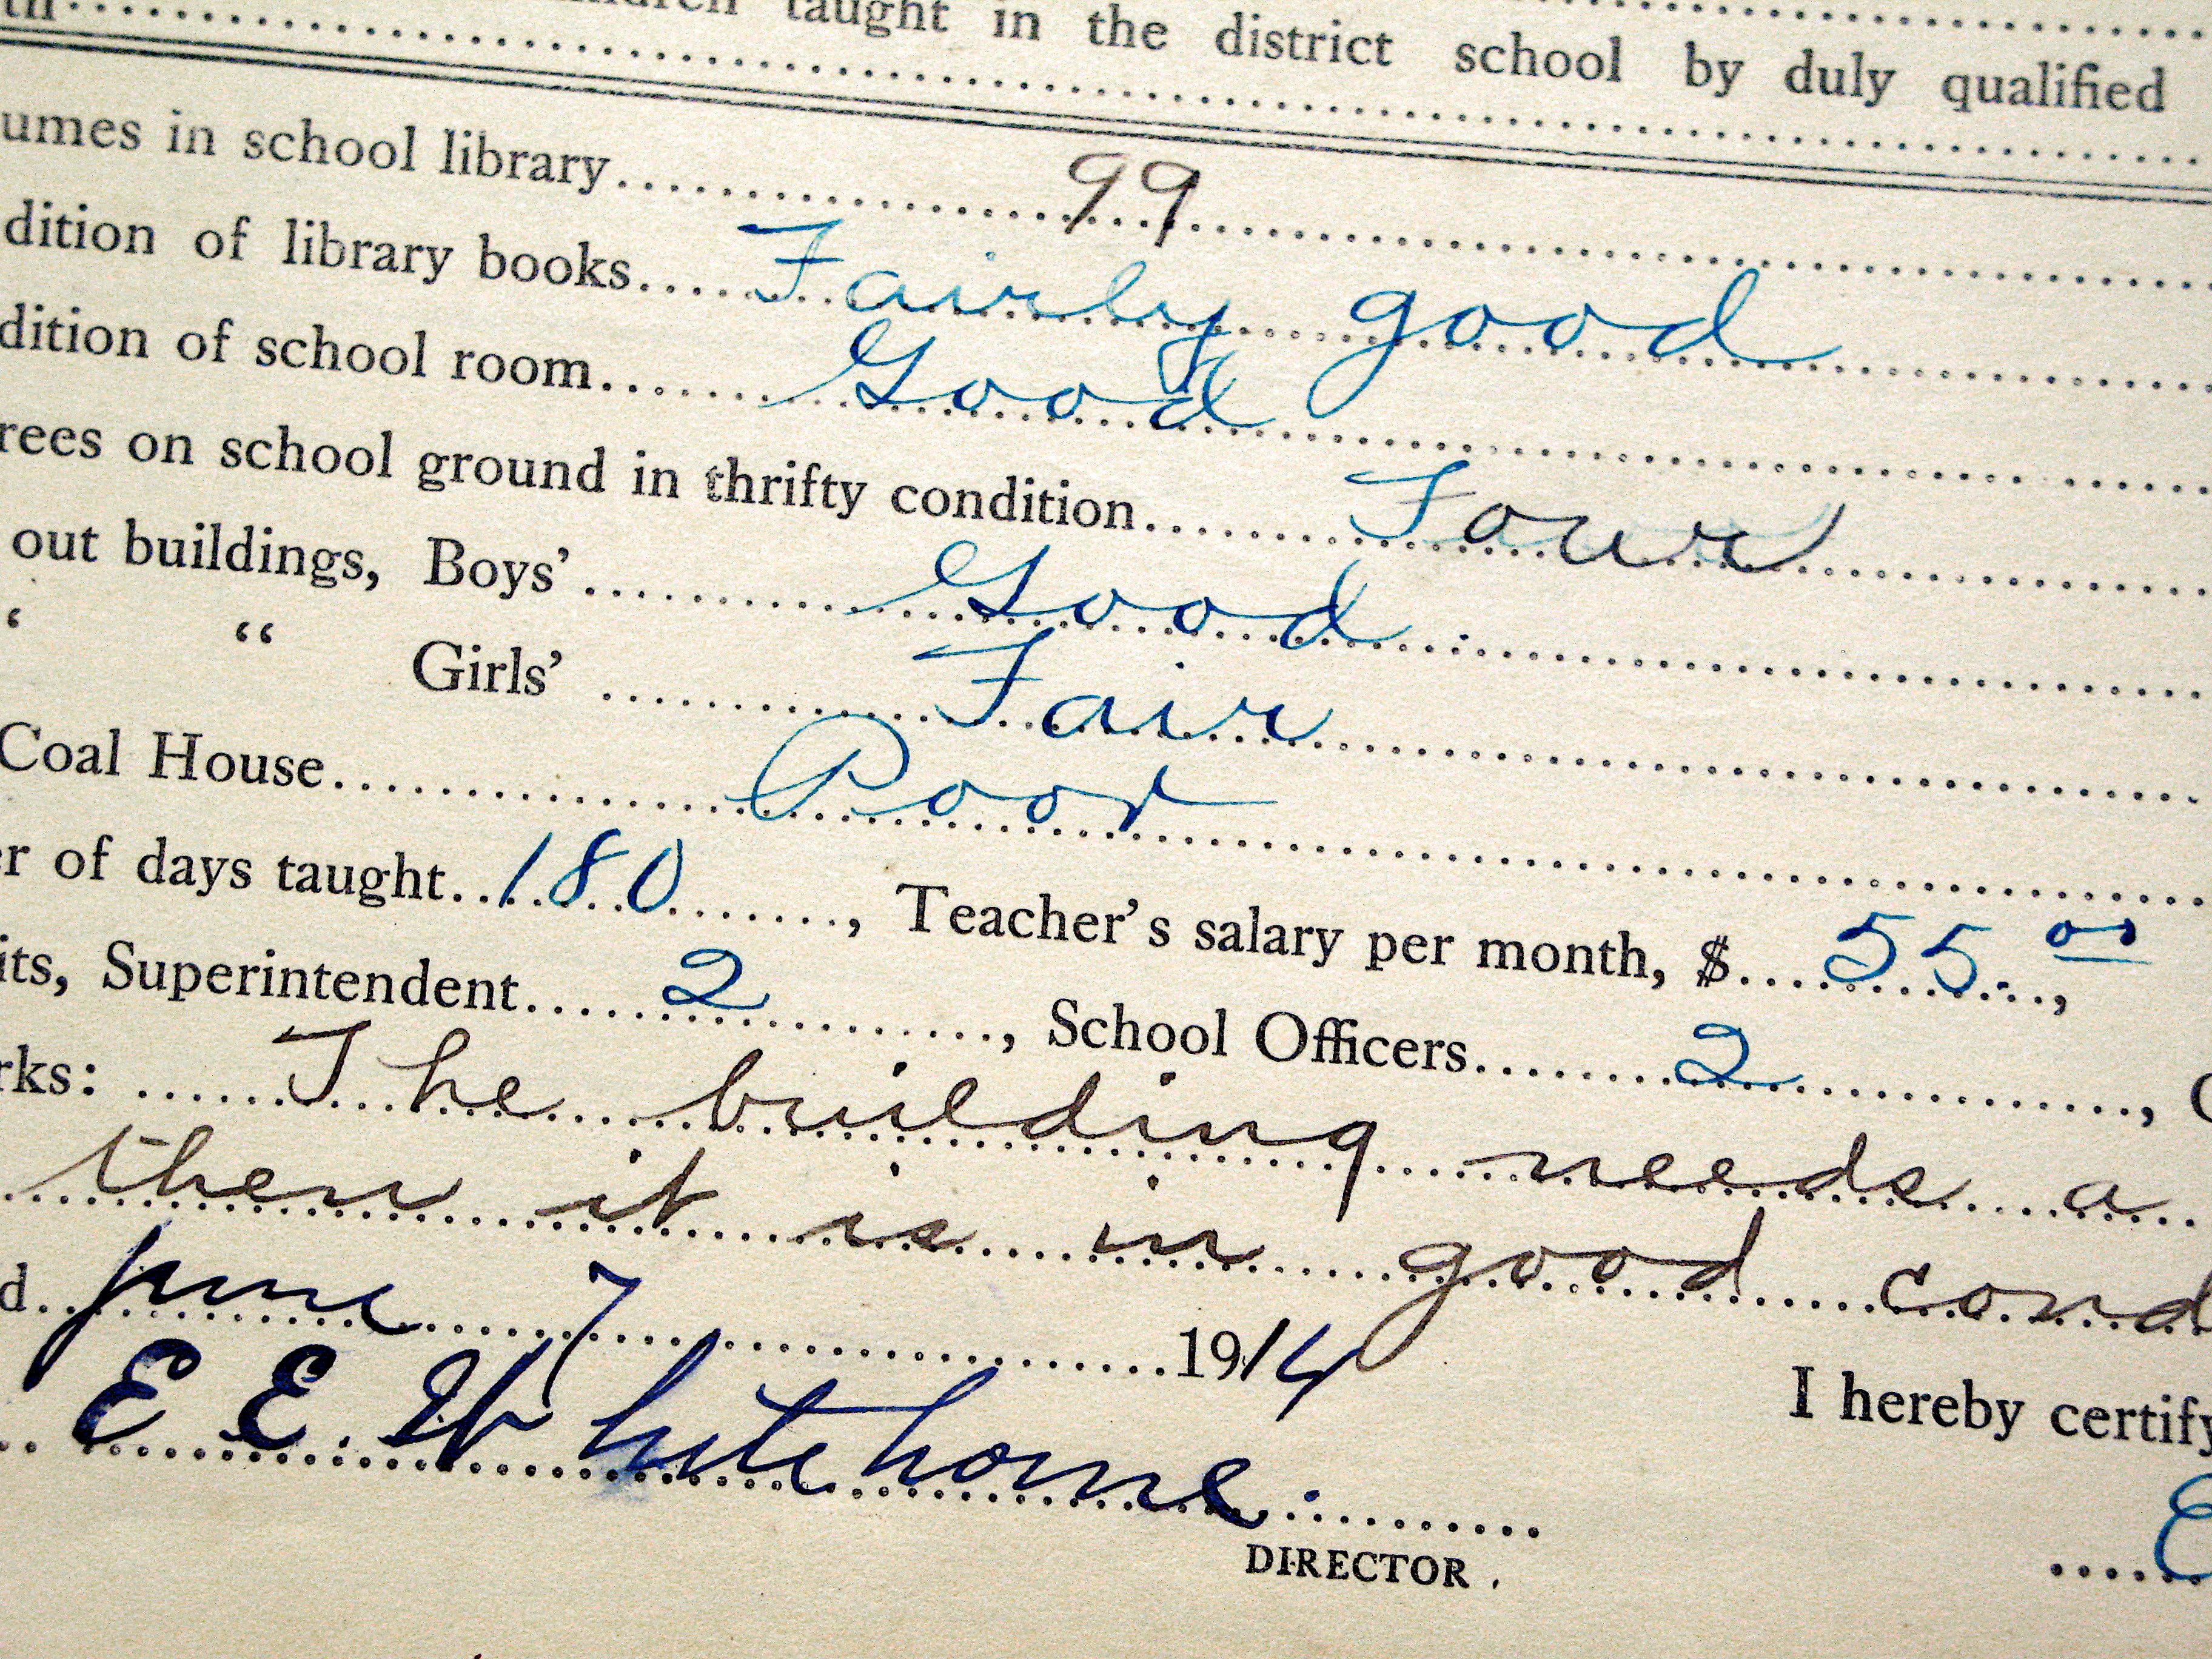 taught in the district school by duly qualified
umes in school library 99
dition of library books Fairly good
dition of school room Good
rees on school ground in thrifty condition Four
out buildings, Boys' Good
‘ “ Girls' Fair
Coal House Poor
er of days taught 180, Teacher's salary per month, $ 55.00,
its, Superintendent 2, School Officers 2,
rks: The building needs a
then it is in good cond
d June 7 1914
I hereby certify
E E Whitehorne
DIRECTOR.